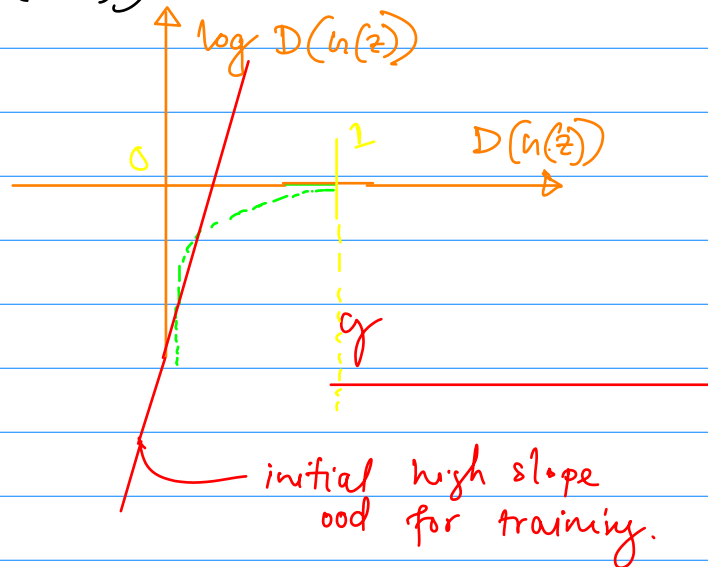 log D(G(z))
0
1
D(G(z))
g
initial high slope
ood for training.